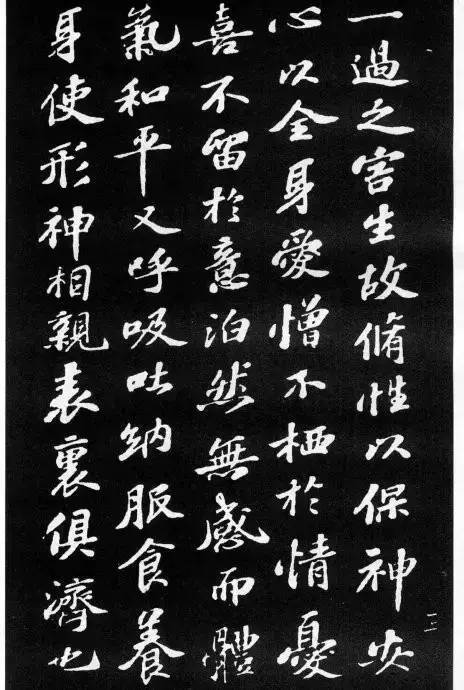 一過之害生故脩性以保神安
心以全身愛憎不栖於情憂
喜不留於意泊然無感而體
氣和平又呼吸吐納服食養
身使形神相親表裏俱濟也
三